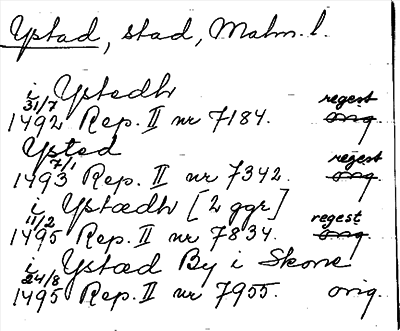 Ystad, stad, Malm. l.
i Ystedh
31/7 regest
1492 Rep. II nr 7184. orig.
Ysted
7/1 regest
1493 Rep. II nr 7342. orig.
i Ystædh [2 ggr]
11/2 regest
1495 Rep. II nr 7834. orig.
i Ystæd By i Skone
24/8
1495 Rep. II nr 7955. orig.